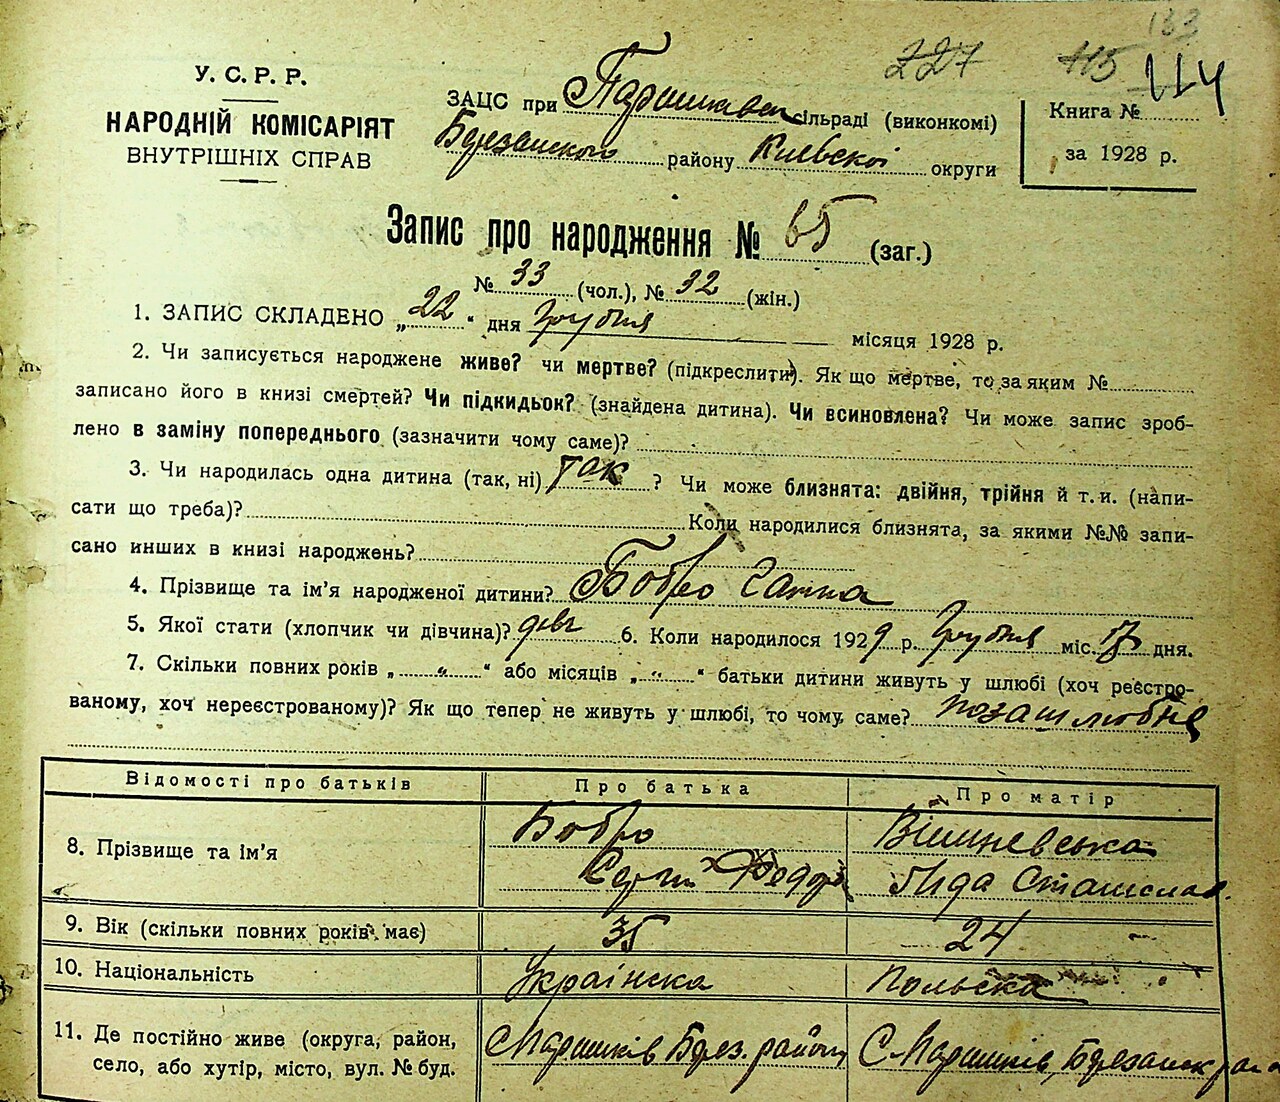 133
227 115 114
У. С. Р. Р.
НАРОДНІЙ КОМІСАРІЯТ
ВНУТРІШНІХ СПРАВ
ЗАЦС при сільраді (виконкомі)
Березанского району Киевскоі округи
Книга №
за 1928 р.
Запис про народження № 65 (заг.)
№ 33 (чол.), № 32 (жін.)
1. ЗАПИС СКЛАДЕНО „22“ дня Грудня місяця 1928 р.
2. Чи записується народжене живе? чи мертве? (підкреслити). Як що мертве, то за яким №
записано його в книзі смертей? Чи підкидьок? (знайдена дитина). Чи всиновлена? Чи може запис зроб-
лено в заміну попереднього (зазначити чому саме)?
3. Чи народилась одна дитина (так, ні) так ? Чи може близнята: двійня, трійня й т. и. (напи-
сати що треба)? Коли народилися близнята, за якими №№ запи-
сано инших в книзі народжень?
4. Прізвище та ім’я народженої дитини? Бобро Ганна
5. Якої стати (хлопчик чи дівчина)? дівч 6. Коли народилося 1929 р. Грудня міс. дня.
7. Скільки повних років „ “ “ або місяців „ “ “ батьки дитини живуть у шлюбі (хоч реєстро-
ваному, хоч нереєстрованому)? Як що тепер не живуть у шлюбі, то чому саме? позашлюбне
Відомості про батьків Про батька Про матір
8. Прізвище та ім’я Бобро Вішневська
Федор Лида Станислав.
9. Вік (скільки повних років має) 35 24
10. Національність Українска Польска
11. Де постійно живе (округа, район, С Парашків Берез. району С. Парашків, Березанск
село, або хутір, місто, вул. № буд.